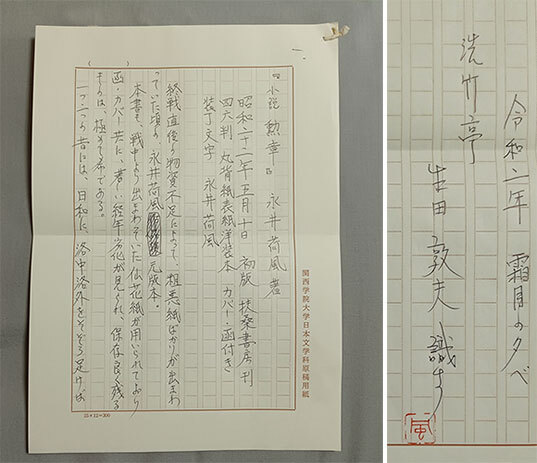 『小説 勲章』 永井荷風著
昭和二十二年五月十日 初版 扶桑書房刊
四六判 丸背紙表紙洋装本 カバー・函付き
装丁文字 永井荷風
終戦直後の物資不足によって、粗悪紙ばかりが出まわ
っていた頃の、永井荷風 元版本・
本書も、戦中より出まわっていた仙花紙が用いられており
函・カバー共に、著しい経年劣化が見られ、保存良く残る
ものは、極めて希である。
一つ二つの昔には、日和に、洛中洛外をそぞろ足けば
関西学院大学日本文学科原稿用紙
15×12=300
令和二年 霜月の夕べ
洗竹亭
生田敦夫 識す
風